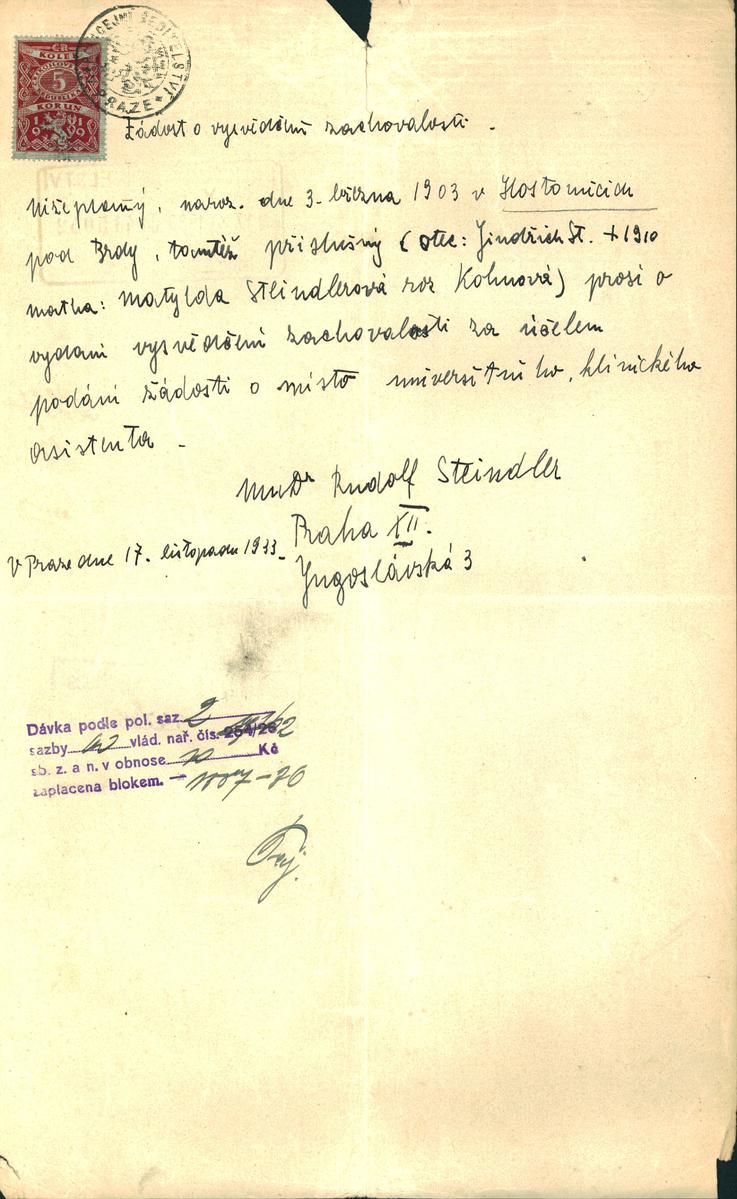 ČR
KOLEK
5
KORUN
19 19
PRAZE
Žádost o vysvědění zachovalosti.
Níže psaný, naroz. dne 3. března 1903 v Hostomicích
pod Brdy, tamtéž příslušný (otec: Jindřich St. +1910
matka: Matylda Steindlerová roz Kohnová) prosí o
vydání vysvědční zachovalosti za účelem
podání žádosti o místo universitního, klinického
asistenta -
MUDr Rudolf Steindler
Praha XII.
V Praze dne 17. listopadu 1933.
Jugoslávská 3
Dávka podle pol. saz. 2
sazby vlád. nař. čís. 254/26
sb. z. a n. v obnose 10 Kč
zaplacena blokem. —